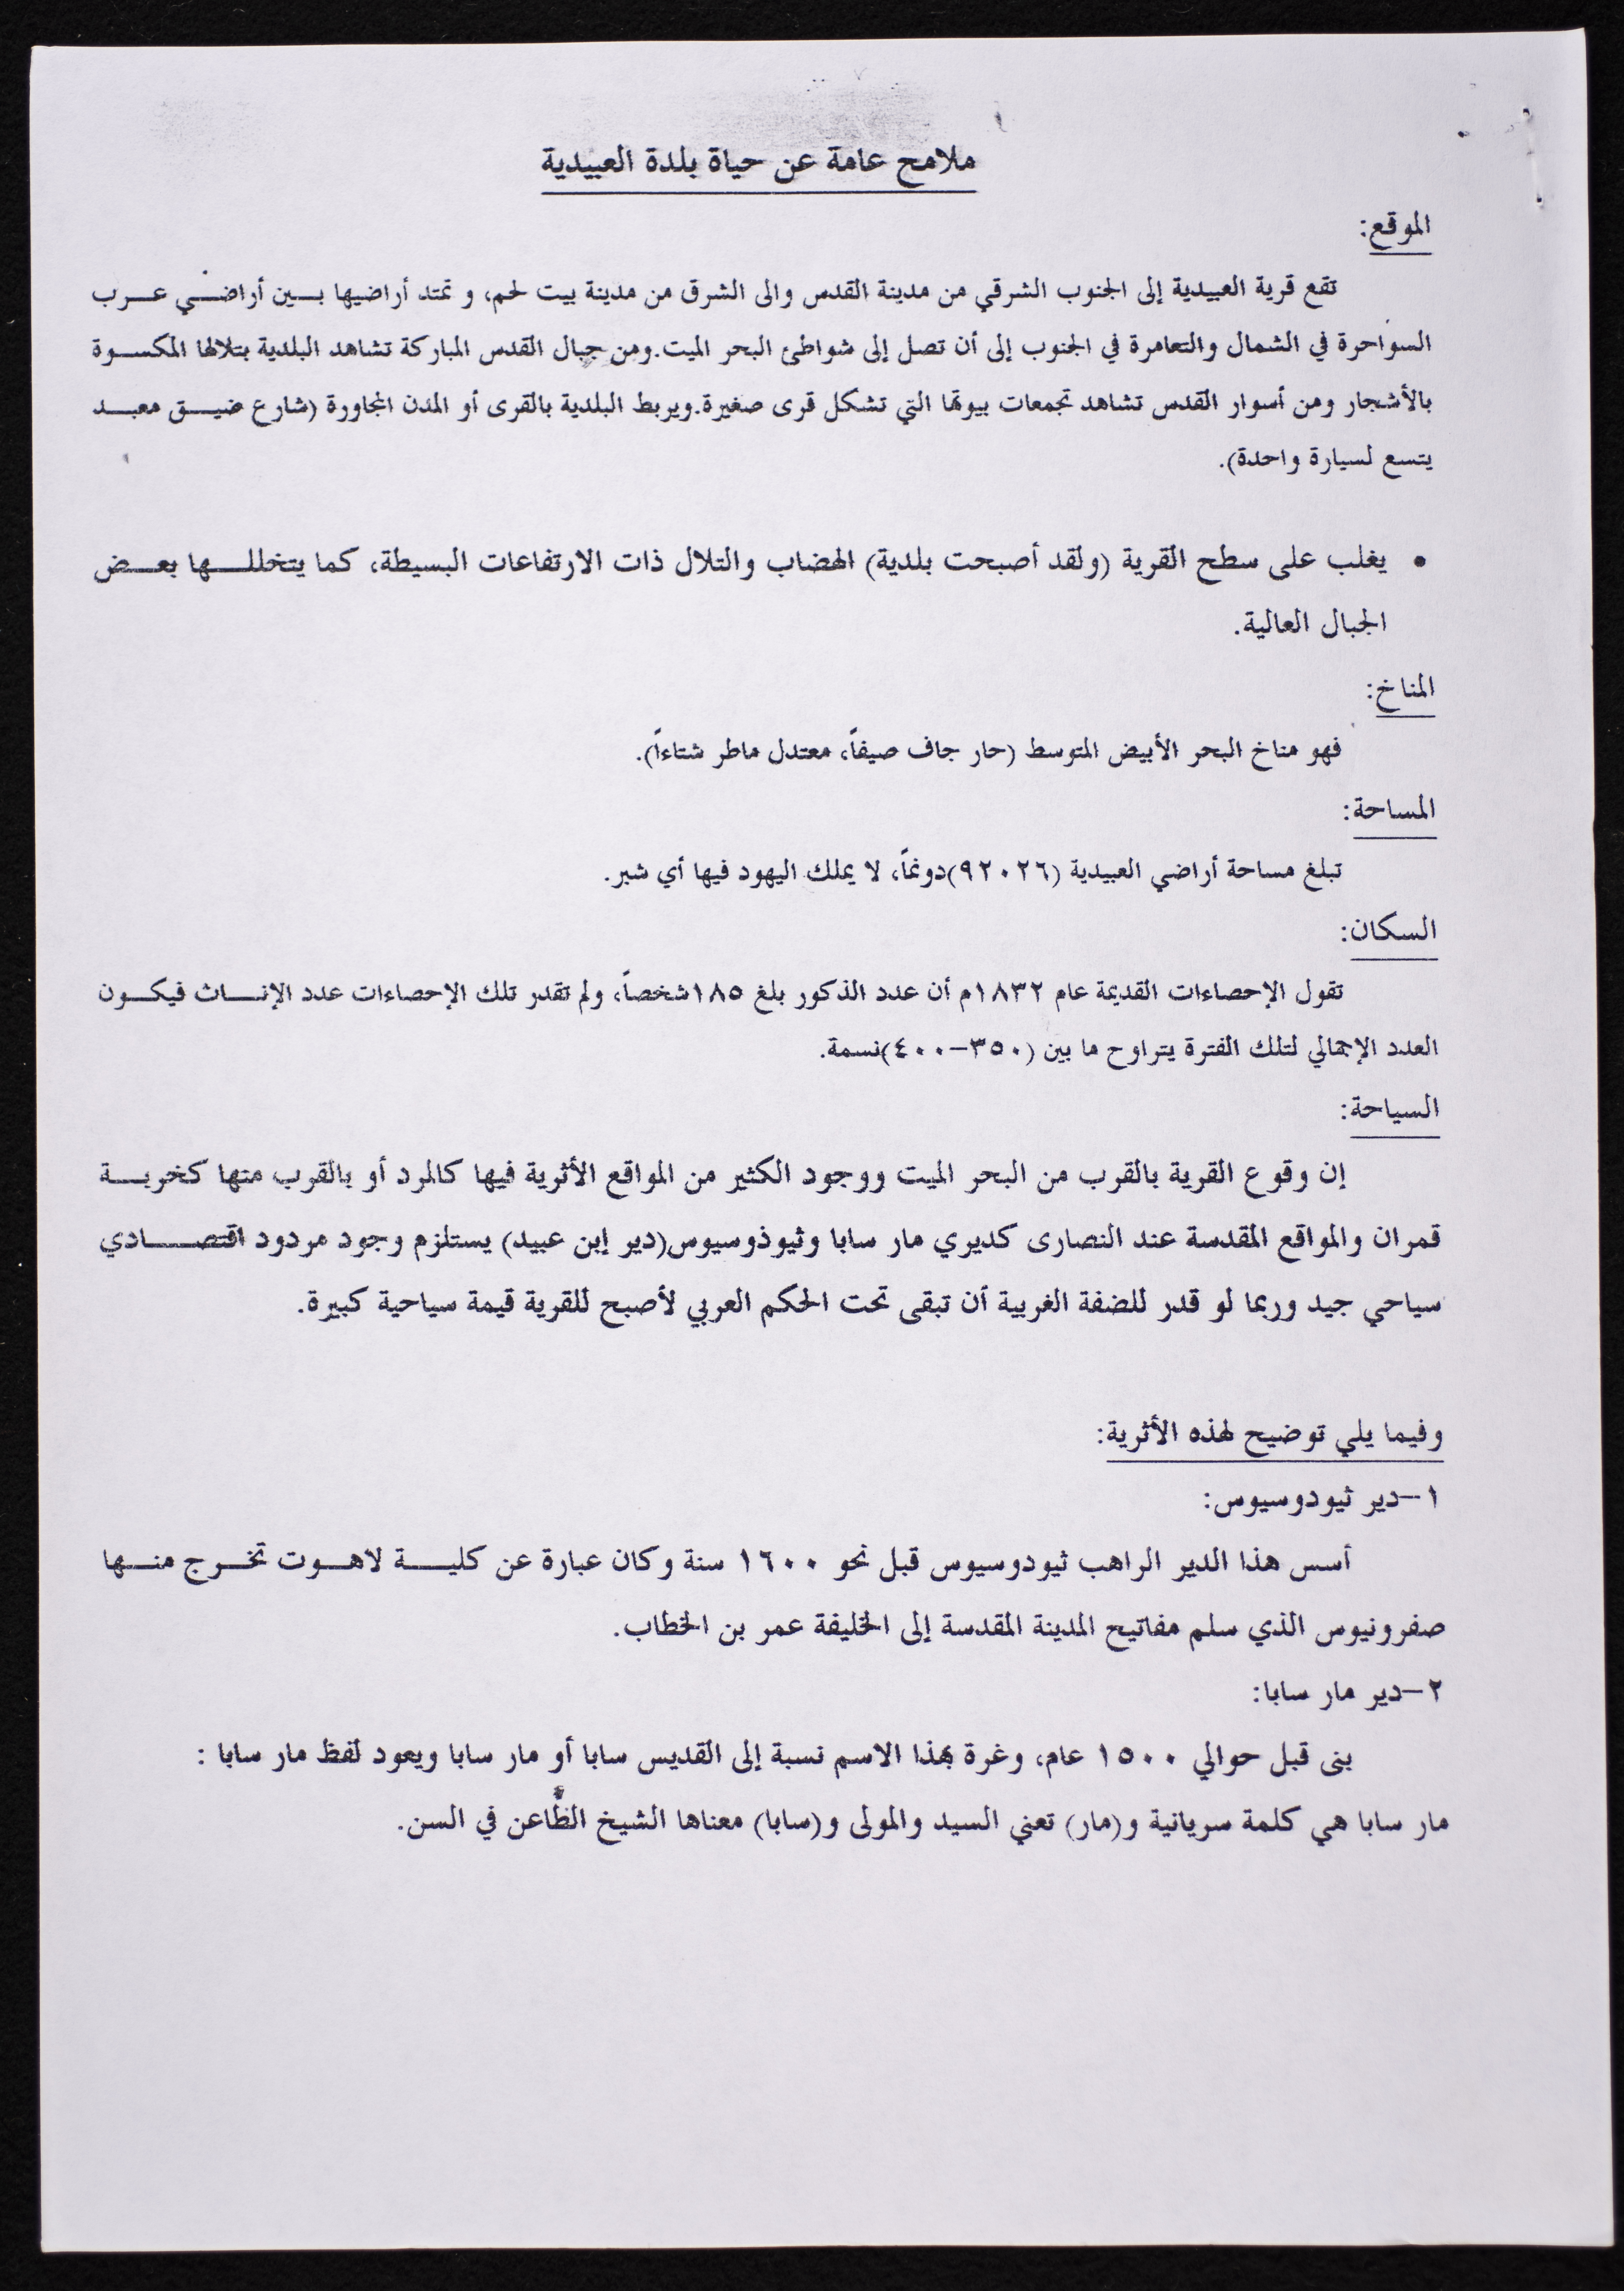 ملامح عامة عن حياة بلدة العبيدية
الموقع:
تقع قرية العبيدية إلى الجنوب الشرقي من مدينة القدس والى الشرق من مدينة بيت لحم، و تمتد أراضيها بين أراضي عرب
السواحرة في الشمال والتعامرة في الجنوب إلى أن تصل إلى شواطئ البحر الميت.ومن جبال القدس المباركة تشاهد البلدية بتلالها المكسوة
بالأشجار ومن أسوار القدس تشاهد تجمعات بيوتها التي تشكل قرى صغيرة.ويربط البلدية بالقرى أو المدن المجاورة (شارع ضيق معبد
يتسع لسيارة واحدة).
• يغلب على سطح القرية (ولقد أصبحت بلدية) الهضاب والتلال ذات الارتفاعات البسيطة، كما يتخللها بعض
الجبال العالية.
المناخ:
فهو مناخ البحر الأبيض المتوسط (حار جاف صيفاً، معتدل ماطر شتاءاً).
المساحة:
تبلغ مساحة أراضي العبيدية (٩٢٠٢٦)دونماً، لا يملك اليهود فيها أي شبر.
السكان:
تقول الإحصاءات القديمة عام ١٨٣٢م أن عدد الذكور بلغ ١٨٥شخصاً، ولم تقدر تلك الإحصاءات عدد الإناث فيكون
العدد الإجمالي لتلك الفترة يتراوح ما بين (٣٥٠-٤٠٠)نسمة.
السياحة:
إن وقوع القرية بالقرب من البحر الميت ووجود الكثير من المواقع الأثرية فيها كالمرد أو بالقرب منها كخربة
قمران والمواقع المقدسة عند النصارى كديري مار سابا وثيوذوسيوس(دير إبن عبيد) يستلزم وجود مردود اقتصادي
سياحي جيد وربما لو قدر للضفة الغربية أن تبقى تحت الحكم العربي لأصبح للقرية قيمة سياحية كبيرة.
وفيما يلي توضيح لهذه الأثرية:
١-دير ثيودوسيوس:
أسس هذا الدير الراهب ثيودوسيوس قبل نحو ١٦٠٠ سنة وكان عبارة عن كلية لاهوت تخرج منها
صفرونيوس الذي سلم مفاتيح المدينة المقدسة إلى الخليفة عمر بن الخطاب.
٢-دير مار سابا:
بنى قبل حوالي ١٥٠٠ عام، وغرة بهذا الاسم نسبة إلى القديس سابا أو مار سابا ويعود لفظ مار سابا :
مار سابا هي كلمة سريانية و(مار) تعني السيد والمولى و(سابا) معناها الشيخ الظَّاعن في السن.